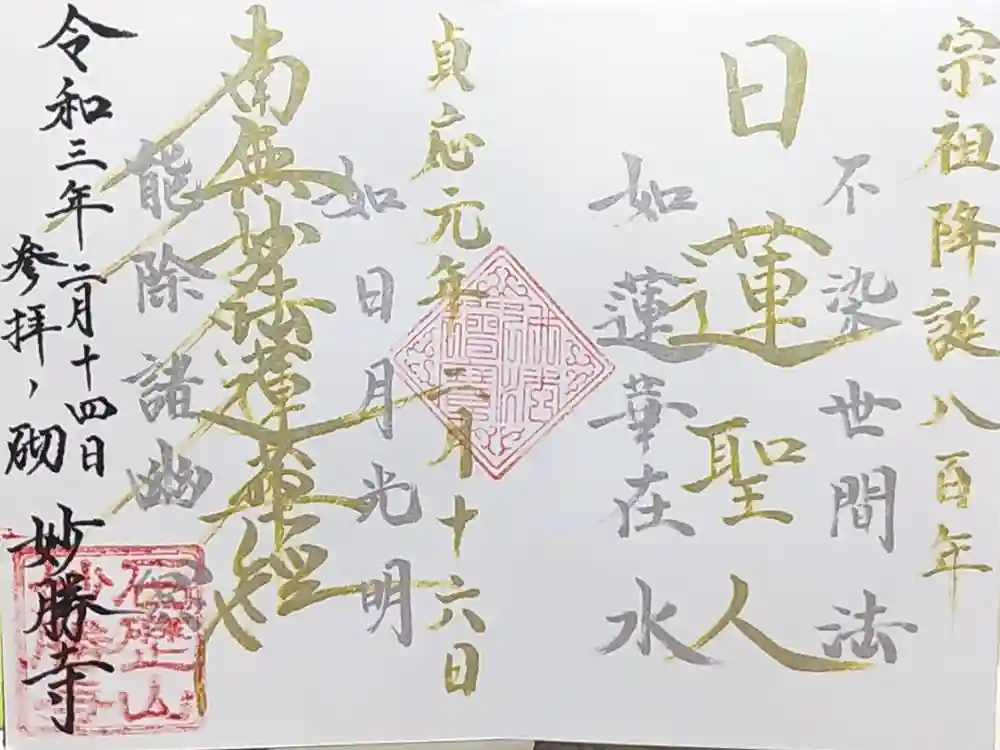 宗祖降誕八百年
不染世間法
日蓮聖人
如蓮華在水
貞応元年二月十六日
如日月光明
南無妙法蓮華経
能除諸幽冥
令和三年二月十四日
参拝、砌
妙勝寺